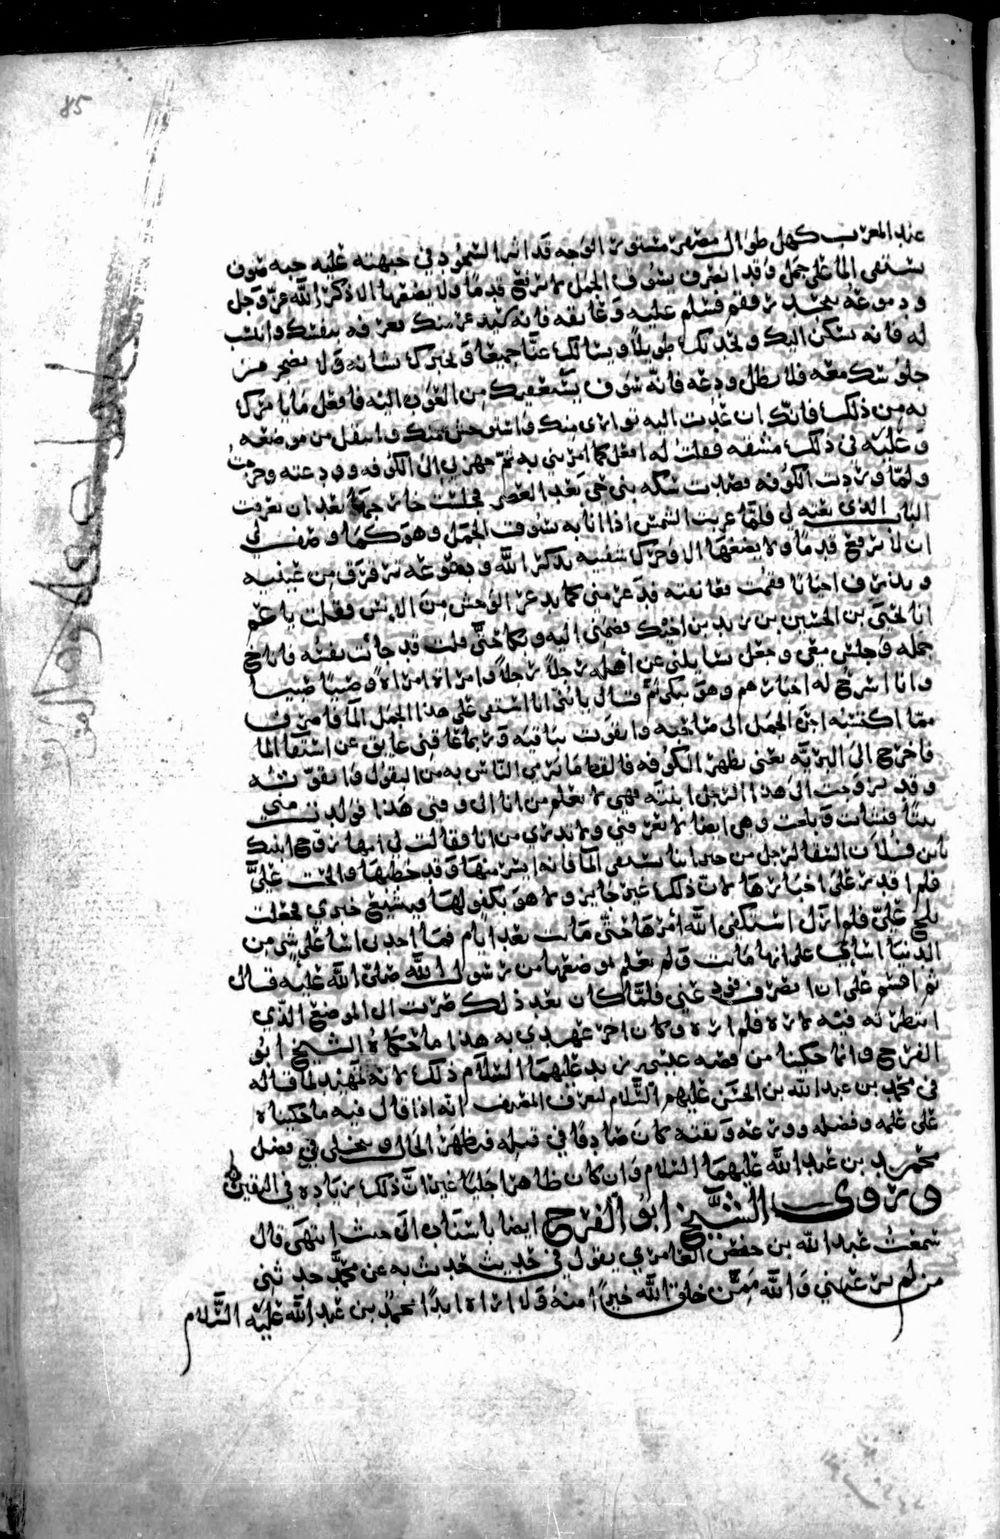 85
عند المغرب كهل طوال مصفر مستور الوجه قد اثر السجود في جبهته عليه جبة صوف
يستقي الما على جمل وقد انصرف يسوق الجمل لا يرفع قدما ولا يضعها الا ذكر الله عز وجل
ودموعه تنحدر فقم فسلم عليه وعانقه فانه سيذعر منك فعرفه نفسك وانتسب
له فانه يسكن اليك ويحدثك طويلا ويسالك عنا جميعا ويخبرك بشانه ولا يضجر من
جلوسك معه فلا تطل ودعه فانه سوف يستعفيك من العود اليه فافعل ما يامرك
به من ذلك فانك ان عدت اليه توارى منك واستوحش منك وانتقل من موضعه
وعليه في ذلك مشقة فقلت له افعل كما امرتني به ثم جهزني الى الكوفة وودعته وخرجت
ولما وردت الكوفة قصدت سكة بني حي بعد العصر فجلست خارجها بعد ان تعرفت
الباب الذي نعته لي فلما غربت الشمس اذا انا به يسوق الجمل وهو كما وصف لي
ابي لا يرفع قدما ولا يضعها الا وحرك شفتيه بذكر الله ودموعه ترقرق من عينيه
وتذرف احيانا فقمت فعانقته فذعر مني كما يذعر الوحش من الانس فقلت يا عم
انا يحيى بن الحسين بن زيد بن اخيك فضمني اليه وبكا حتى قلت قد جائت نفسه فاناخ
جمله وجلس معي وجعل يسايلني عن اهله رجلا رجلا وامراة امراة وصبيا صبيا
وانا اشرح له اخبارهم وهو يبكي ثم قال يا بني انا استقي على هذا الجمل الما فاصرف
مما اكتسبه اجرة الجمل الى صاحبه واتقوت بباقيه وربما عاقني عايق عن استقا الما
فاخرج الى البرية يعني بظهر الكوفة فالقط ما يرمي الناس به من البقول فاتقوته
وقد تزوجت الى هذا الرجل ابنته فهي لا تعلم من انا الى وقتي هذا فولدت مني
بنتا فنشات وبلغت وهي ايضا لا تعرفني ولا تدري من انا فقالت لي امها زوج ابنتك
بابن فلان السقا لرجل من جيراننا يستقي الما فانه ايسر منها وقد خطبها والحت علي
فلم اقدر على اخبارها لان ذلك غير جايز ولا هو بكفو لها فيشيع خبري فجعلت
تلح علي فلم ازل استكفي الله امرها حتى ماتت بعد ايام فما اجدني اسا على شي من
الدنيا اساي على انها ماتت ولم تعلم موضعها من رسول الله صلى الله عليه قال
ثم اقسم علي ان انصرف فودعني فلما كان بعد ذلك صرت الى الموضع الذي
انتظرته فيه لاراه فلم اره وكان اخر عهدي به هذا ما حكاه الشيخ ابو
الفرج وانما حكينا من قصة عيسى بن زيد عليهما السلام ذلك لانه تمهيد لما قاله
في محمد بن عبد الله بن الحسن عليهم السلام ليعرف المنصف انه اذا قال فيه ما حكيناه
على علمه وفضله وورعه وثقته كان صادقا في قيله فيظهر الحال وينجلي في فضل
محمد بن عبد الله عليهما السلام وان كان ظاهرا جليا غير ان ذلك زيادة في اليقين
وروى الشيخ ابو الفرج ايضا باسناده الى حيث انتهى قال
سمعت عبد الله بن حفص العامري يقول في حديث حدث به عن محمد حدثني
من لم تر عيني والله ممن خلق الله خيرا منه ولا اراه ابدا محمد بن عبد الله عليه السلام